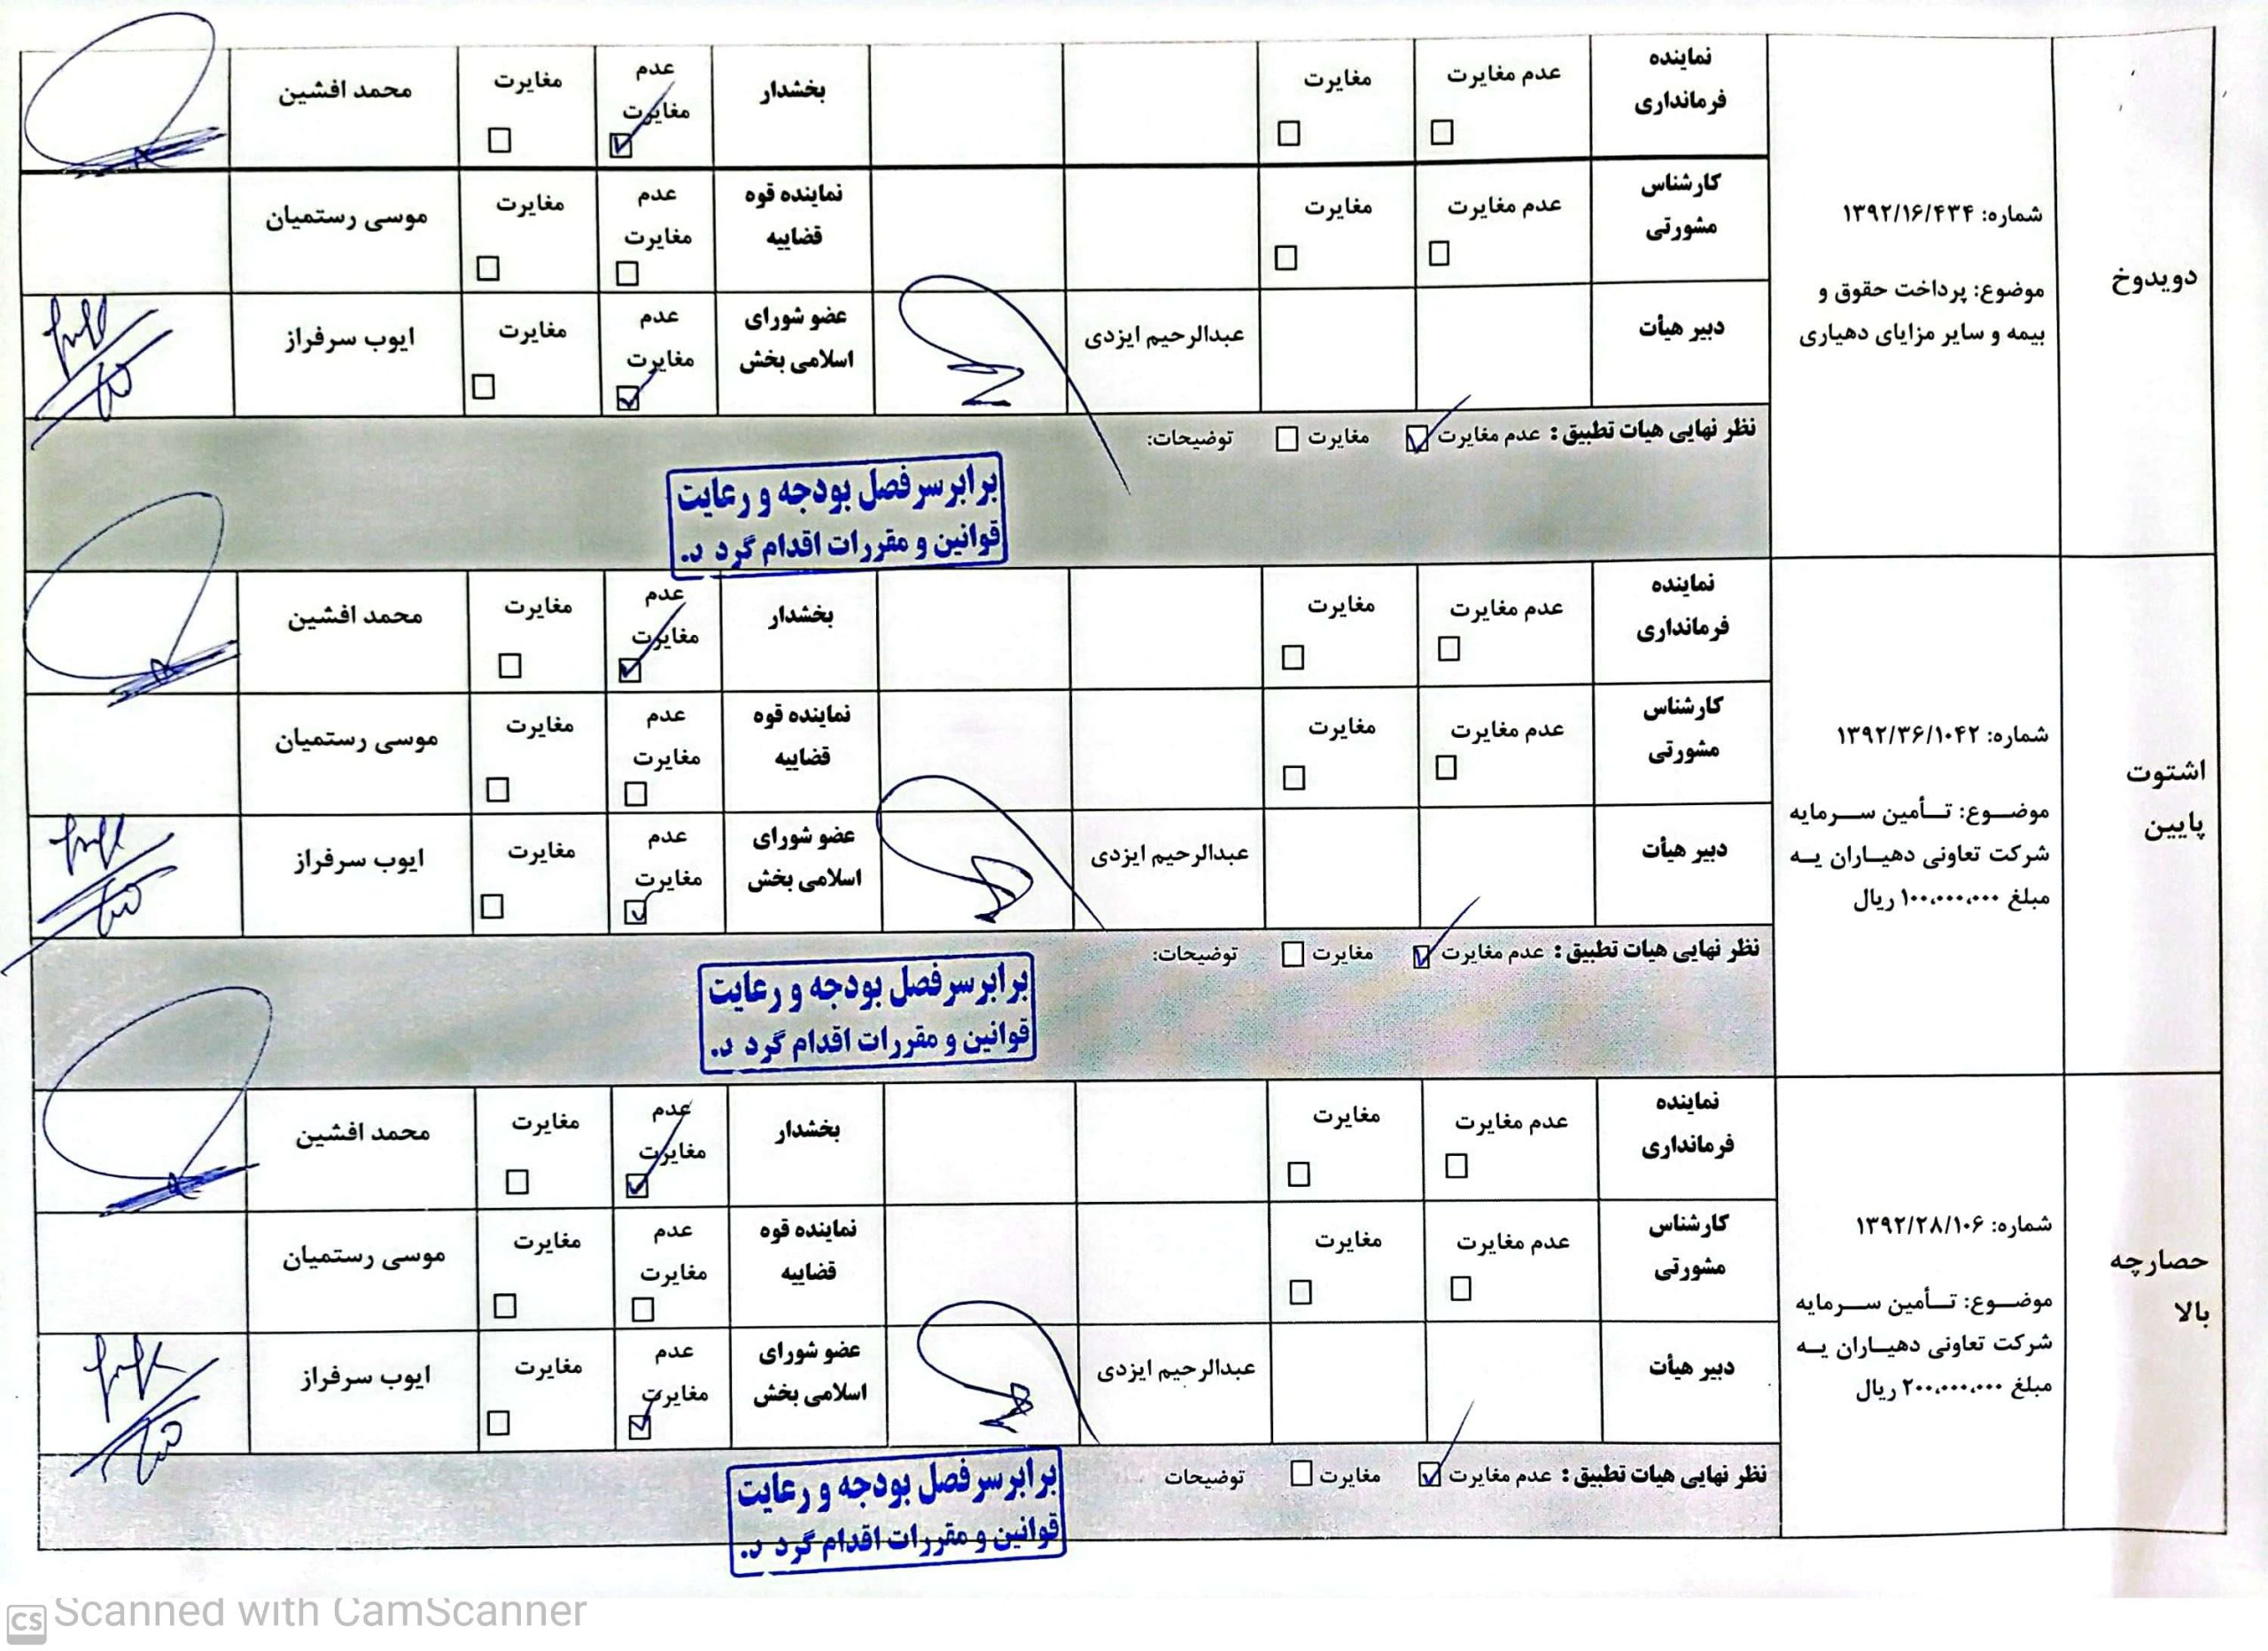 دویدوخ
شماره: ۱۳۹۲/۱۶/۴۳۴
موضوع: پرداخت حقوق و
بیمه و سایر مزایای دهیاری
نماینده
فرمانداری
عدم مغایرت
مغایرت
بخشدار
عدم
مغایرت
مغایرت
محمد افشین
کارشناس
مشورتی
عدم مغایرت
مغایرت
نماینده قوه
قضاییه
عدم
مغایرت
مغایرت
موسی رستمیان
دبیر هیأت
عبدالرحیم ایزدی
عضو شورای
اسلامی بخش
عدم
مغایرت
مغایرت
ایوب سرفراز
نظر نهایی هیات تطبیق : عدم مغایرت مغایرت توضیحات:
برابرسرفصل بودجه و رعایت
قوانین و مقررات اقدام گرد د.
اشتوت
پایین
شماره: ۱۳۹۲/۳۶/۱۰۴۲
موضـــوع: تــأمین ســرمایه
شرکت تعاونی دهیــاران یــه
مبلغ ۱۰۰،۰۰۰،۰۰۰ ریال
نماینده
فرمانداری
عدم مغایرت
مغایرت
بخشدار
عدم
مغایرت
مغایرت
محمد افشین
کارشناس
مشورتی
عدم مغایرت
مغایرت
نماینده قوه
قضاییه
عدم
مغایرت
مغایرت
موسی رستمیان
دبیر هیأت
عبدالرحیم ایزدی
عضو شورای
اسلامی بخش
عدم
مغایرت
مغایرت
ایوب سرفراز
نظر نهایی هیات تطبیق : عدم مغایرت مغایرت توضیحات:
برابرسرفصل بودجه و رعایت
قوانین و مقررات اقدام گرد د.
حصارچه
بالا
شماره: ۱۳۹۲/۲۸/۱۰۶
موضـــوع: تــأمین ســرمایه
شرکت تعاونی دهیــاران یــه
مبلغ ۲۰۰،۰۰۰،۰۰۰ ریال
نماینده
فرمانداری
عدم مغایرت
مغایرت
بخشدار
عدم
مغایرت
مغایرت
محمد افشین
کارشناس
مشورتی
عدم مغایرت
مغایرت
نماینده قوه
قضاییه
عدم
مغایرت
مغایرت
موسی رستمیان
دبیر هیأت
عبدالرحیم ایزدی
عضو شورای
اسلامی بخش
عدم
مغایرت
مغایرت
ایوب سرفراز
نظر نهایی هیات تطبیق : عدم مغایرت مغایرت توضیحات
برابرسرفصل بودجه و رعایت
قوانین و مقررات اقدام گرد د.
CS Scanned with CamScanner